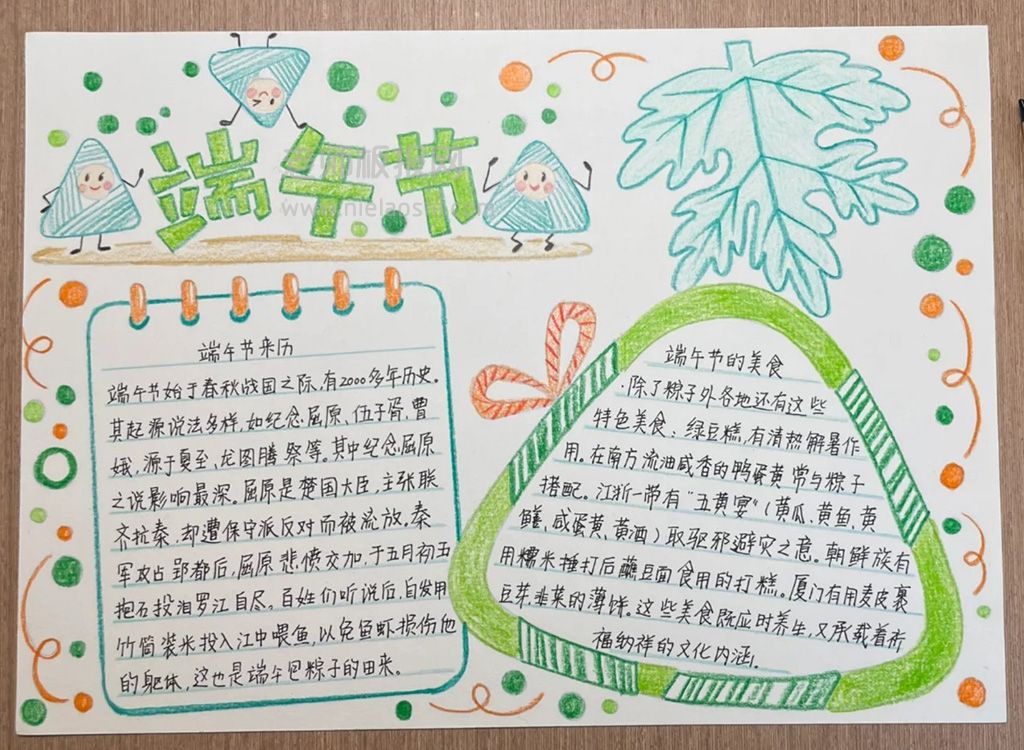 端午节
端午节来历
端午节始于春秋战国之际,有2000多年历史。
其起源说法多样,如纪念屈原、伍子胥、曹
娥,源于夏至、龙图腾祭等。其中纪念屈原
之说影响最深。屈原是楚国大臣,主张联
齐抗秦,却遭保守派反对而被流放,秦
军攻占郢都后,屈原悲愤交加,于五月初五
抱石投汨罗江自尽。百姓们听说后,自发用
竹筒装米投入江中喂鱼,以免鱼虾损伤他
的躯体,这也是端午包粽子的由来。
端午节的美食
·除了粽子外各地还有这些
特色美食:绿豆糕,有清热解暑作
用。在南方流油咸香的鸭蛋黄常与粽子
搭配。江浙一带有“五黄宴”(黄瓜、黄鱼、黄
鳝、咸蛋黄、黄酒)取驱邪避灾之意。朝鲜族有
用糯米捶打后蘸豆面食用的打糕。厦门有用麦皮裹
豆芽、韭菜的薄饼。这些美食既应时养生,又承载着祈
福纳祥的文化内涵。